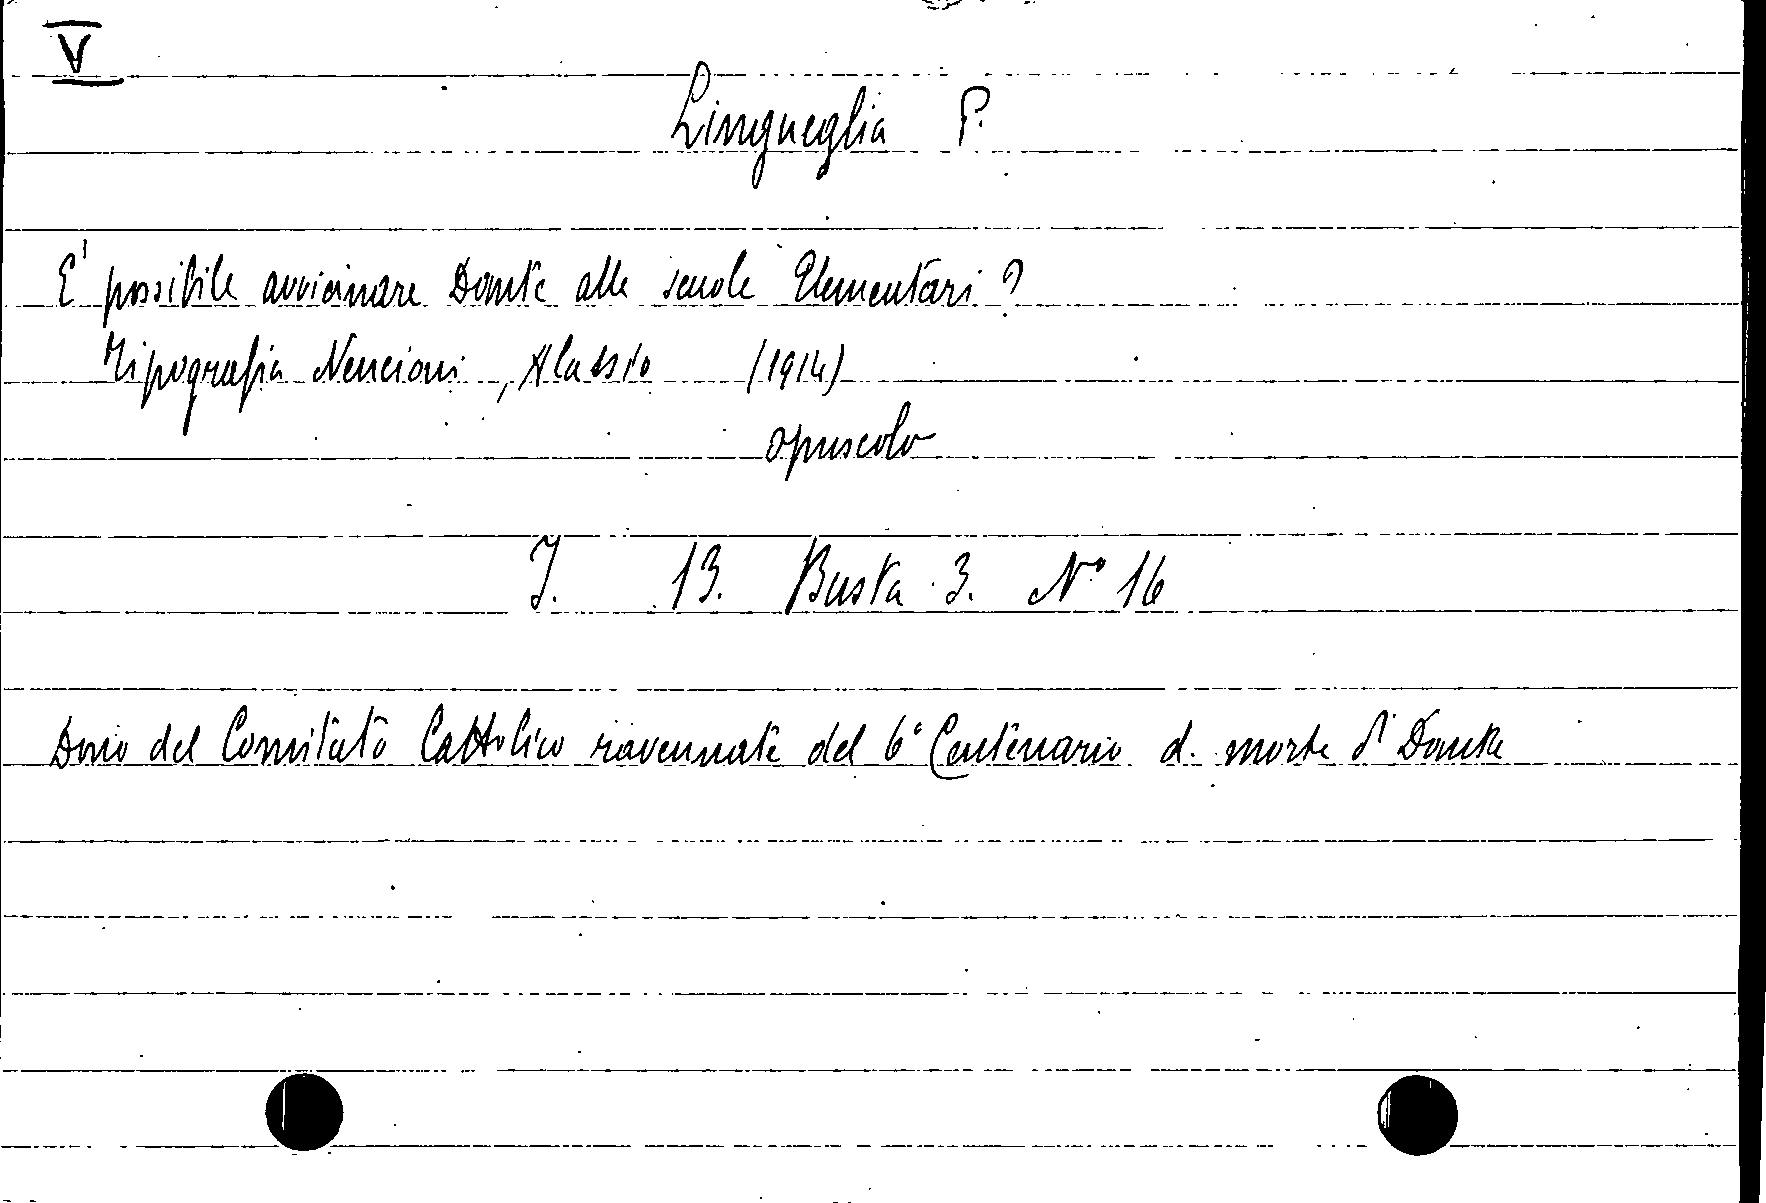 V
Lingueglia P.
E' possibile avvicinare Dante alle scuole Elementari?
Tipografia Nencioni, Alassio (1914)
opuscolo
I. 13. Busta 3. N° 16
Dono del Comitato Cattolico ravennate del 6° Centenario d. morte di Dante